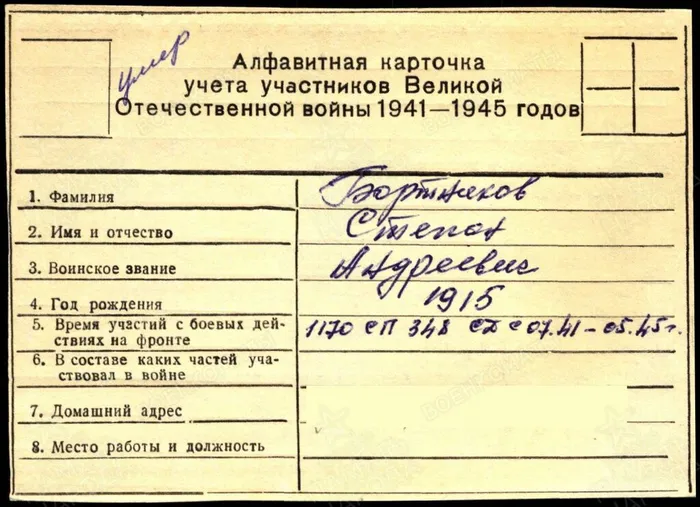 умер
Алфавитная карточка
учета участников Великой
Отечественной войны 1941—1945 годов
1. Фамилия
Бортников
2. Имя и отчество
Степан
3. Воинское звание
Андреевич
4. Год рождения
1915
5. Время участий с боевых дей-
ствиях на фронте
1170 СП 348 СД с 07.41 – 05.45 г.
6. В составе каких частей уча-
ствовал в войне
7. Домашний адрес
8. Место работы и должность